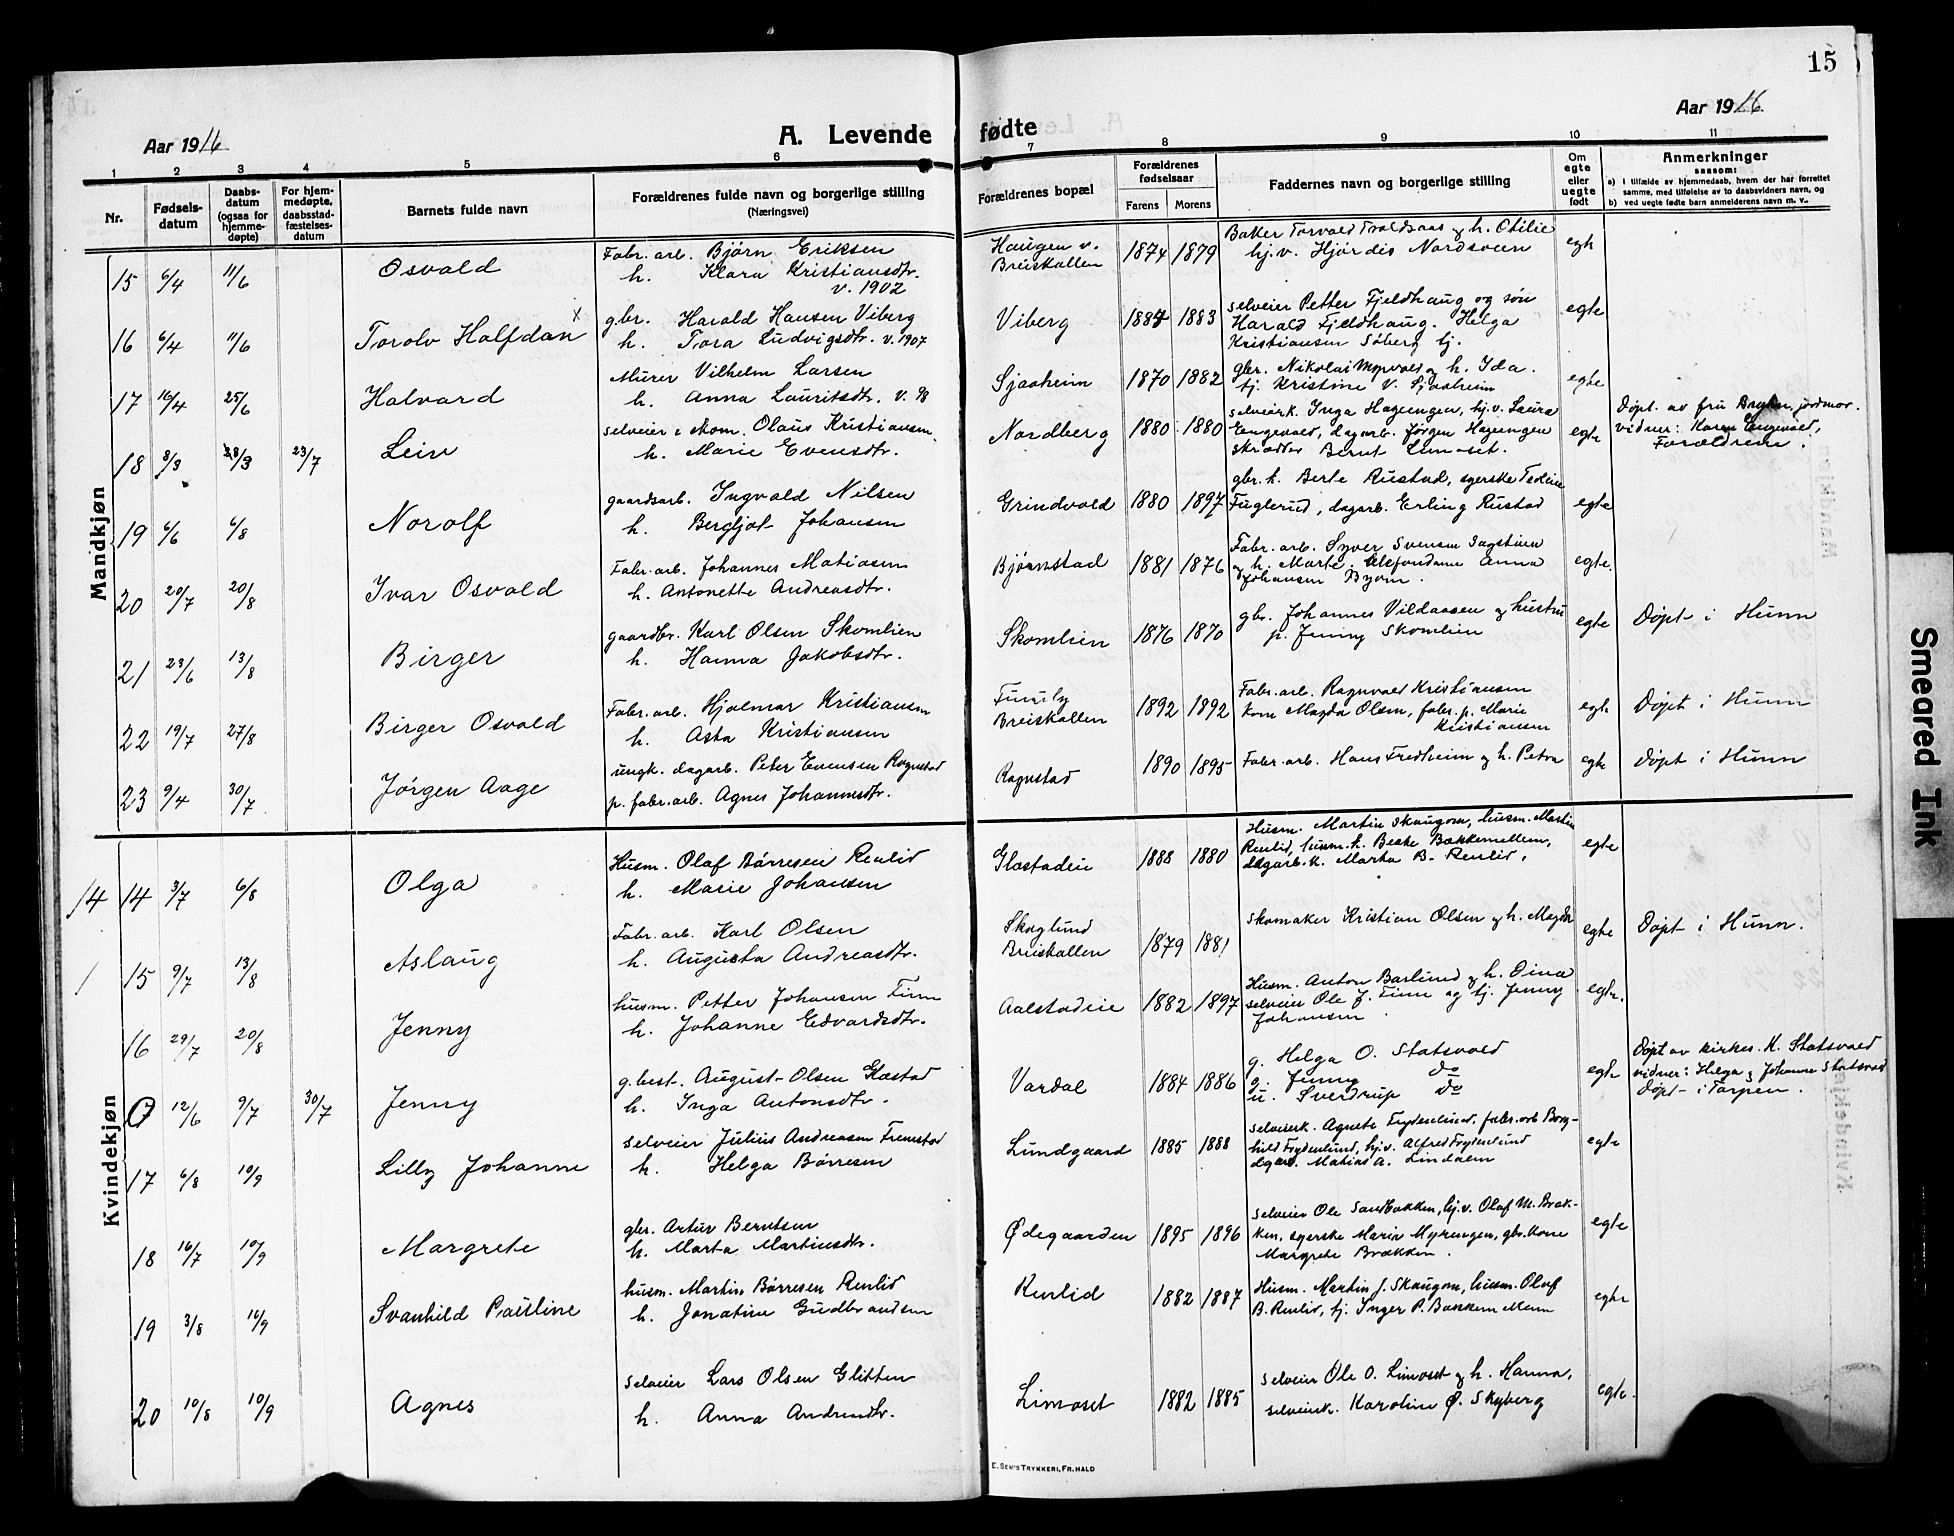 15
Aar 1916
A. Levende fødte
Aar 1916
1 2 3 4 5 6 7 8 9 10 11
Nr.
Fødsels-
datum
Daabs-
datum
(ogsaa for
hjemme-
døpte)
For hjem-
medøpte,
daabsstad-
fæstelses-
datum
Barnets fulde navn
Forældrenes fulde navn og borgerlige stilling
(Næringsvei)
Forældrenes bopæl
Forældrenes
fødselsaar
Farens Morens
Faddernes navn og borgerlige stilling
Om
egte
eller
uegte
født
Anmerkninger
saasom:
a) i tilfælde av hjemmedaab, hvem der har forrettet
samme, med tilføielse av to daabsvidners navn, og
b) ved uegte fødte barn anmelderens navn m. v..
Mandkjøn
15 6/4 11/6 Osvald
Fabr. arb. Bjørn Eriksen
h. Klara Kristiansdtr.
v. 1902
Haugen v.
Breiskallen
1874 1879
Baker Torvald Troldsaas og h. Othilie
hj.v. Hjørdis Nordsveen
egte
16 6/4 11/6 Torolv Halfdan x
gbr. Harald Hansen Viberg
h. Tora Ludvigsdtr. v. 1907
Viberg 1884 1883
selveier Petter Fjeldhaug og søn
Harald Fjeldhaug. Helga
Kristiansen Søberg hj.
egte
17 16/4 25/6 Halvard
Murer Vilhelm Larsen
h. Anna Lauritsdtr. v. 98
Sjaaheim 1870 1882
gbr. Nikolai Myrvold og h. Ida.
tj. Kristine V. Sjaaheim
egte
18 8/3 28/3 23/7 Leiv
selveier & skom. Olaus Kristiansen
h. Marie Evensdtr.
Nordberg 1880 1880
selveierk. Inga Hageengen, hj.v. Laura
Engevold, dagarb. Jørgen Hageengen
skrædder Bernt Limoset.
egte
Døpt av fru Bryhn, jordmor.
vidner: Karen Engevold,
Forældrene.
19 6/6 6/8 Norolf
gaardsarb. Ingvald Nilsen
h. Bergljot Johansen
Grindvold 1880 1897
gbr. h. Berte Rustad, syerske
Fuglerud, dagarb. Erling Rustad
egte
20 20/7 20/8 Ivar Osvald
Fabr. arb. Johannes Matiasen
h. Antonette Andreasdtr.
Bjørnstad 1881 1876
Fabr. arb. Syver Svensen Sagstuen
og h. Marte. telefondame Anna
Johansen Byom.
egte.
21 23/6 13/8 Birger
gaardbr. Karl Olsen Skomlien
h. Hanna Jakobsdtr.
Skomlien 1876 1870
gbr. Johannes Vildaasen og hustru
p. Jenny Skomlien
egte Døpt i Hunn
22 19/7 27/8 Birger Osvald
Fabr. arb. Hjalmar Kristiansen
h. Asta Kristiansen
Furuly
Breiskallen
1892 1892
Fabr. arb. Ragnvald Kristiansen
Kone Magda Olsen, fabr. p. Marie
Kristiansen
egte Døpt i Hunn
23 9/4 30/7 Jørgen Aage
ungk. dagarb. Peter Evensen Rognstad
p. fabr. arb. Agnes Johannesdtr.
Rognstad 1890 1895
Fabr. arb. Hans Fredheim og h. Petra
egte Døpt i Hunn
Kvindekjøn
14 14 3/7 6/8 Olga
Husm. Olaf Børresen Renlid
h. Marie Johansen
Glæstadeie 1888 1880
Husm. Martin Skaugom, husm. Martin
Renlid, husm. h. Beate Bakkemellem,
dagarb. k. Marta B. Renlid.
egte
1 15 9/7 13/8 Aslaug
Fabr. arb. Karl Olsen
h. Augusta Andreasdtr.
Skoglund
Breiskallen
1879 1881
Skomaker Kristian Olsen og h. Magda
egte Døpt i Hunn.
16 29/7 20/8 Jenny
husm. Petter Johansen Finn
h. Johanne Edvardsdtr.
Aalstadeie 1882 1897
Husm. Anton Barlund og h. Oina
selveier Ole J. Finn og tj. Jenny
Johansen.
egte.
0 12/6 9/7 30/7 Jenny
g.best. August Olsen Glæstad
h. Inga Antonsdtr.
Vardal 1884 1886
g. Helga O. Statsvold
g. Jenny do
u. Sverdrup do
egte
Døpt av kirkes. K. Statsvold
vidner: Helga og Johanne Statsvold
Døpt i Torpen.
17 6/8 10/9 Lilly Johanne
selveier Julius Andreasen Fremstad
h. Helga Børresen
Lundgaard 1885 1888
selveierk. Agnete Frydenlund, fabr. arb Borg-
hild Frydenlund, hj.v. Alfred Frydenlund
dgarb. Matias A. Lindalen
egte
18 16/7 10/9 Margrete
gbr. Artur Berntsen
h. Marta Martinsdtr.
Ødegaarden 1895 1896
selveier Ole Sandbakken, hj.v. Olaf M. Bræk-
ken, syerske Marie Myrengen, gbr. kone
Margrete Brækken.
egte
19 3/8 16/9 Svanhild Pauline
husm. Martin Børresen Renlid
h. Jonatine Gudbrandsen
Renlid 1882 1887
Husm. Martin J. Skaugom, husm. Olaf
B. Renlid, tj. Inger P. Bakkem Mem
egte
20 10/8 10/9 Agnes
selveier Lars Olsen Glitten
h. Anna Andreasdtr.
Limoset 1882 1885
selveier Ole O. Limoset og h. Hanna,
selveierk. Karoline Ø. Skyberg
egte.
E. SEM'S TRYKKERI, FR. HALD
Smeared Ink